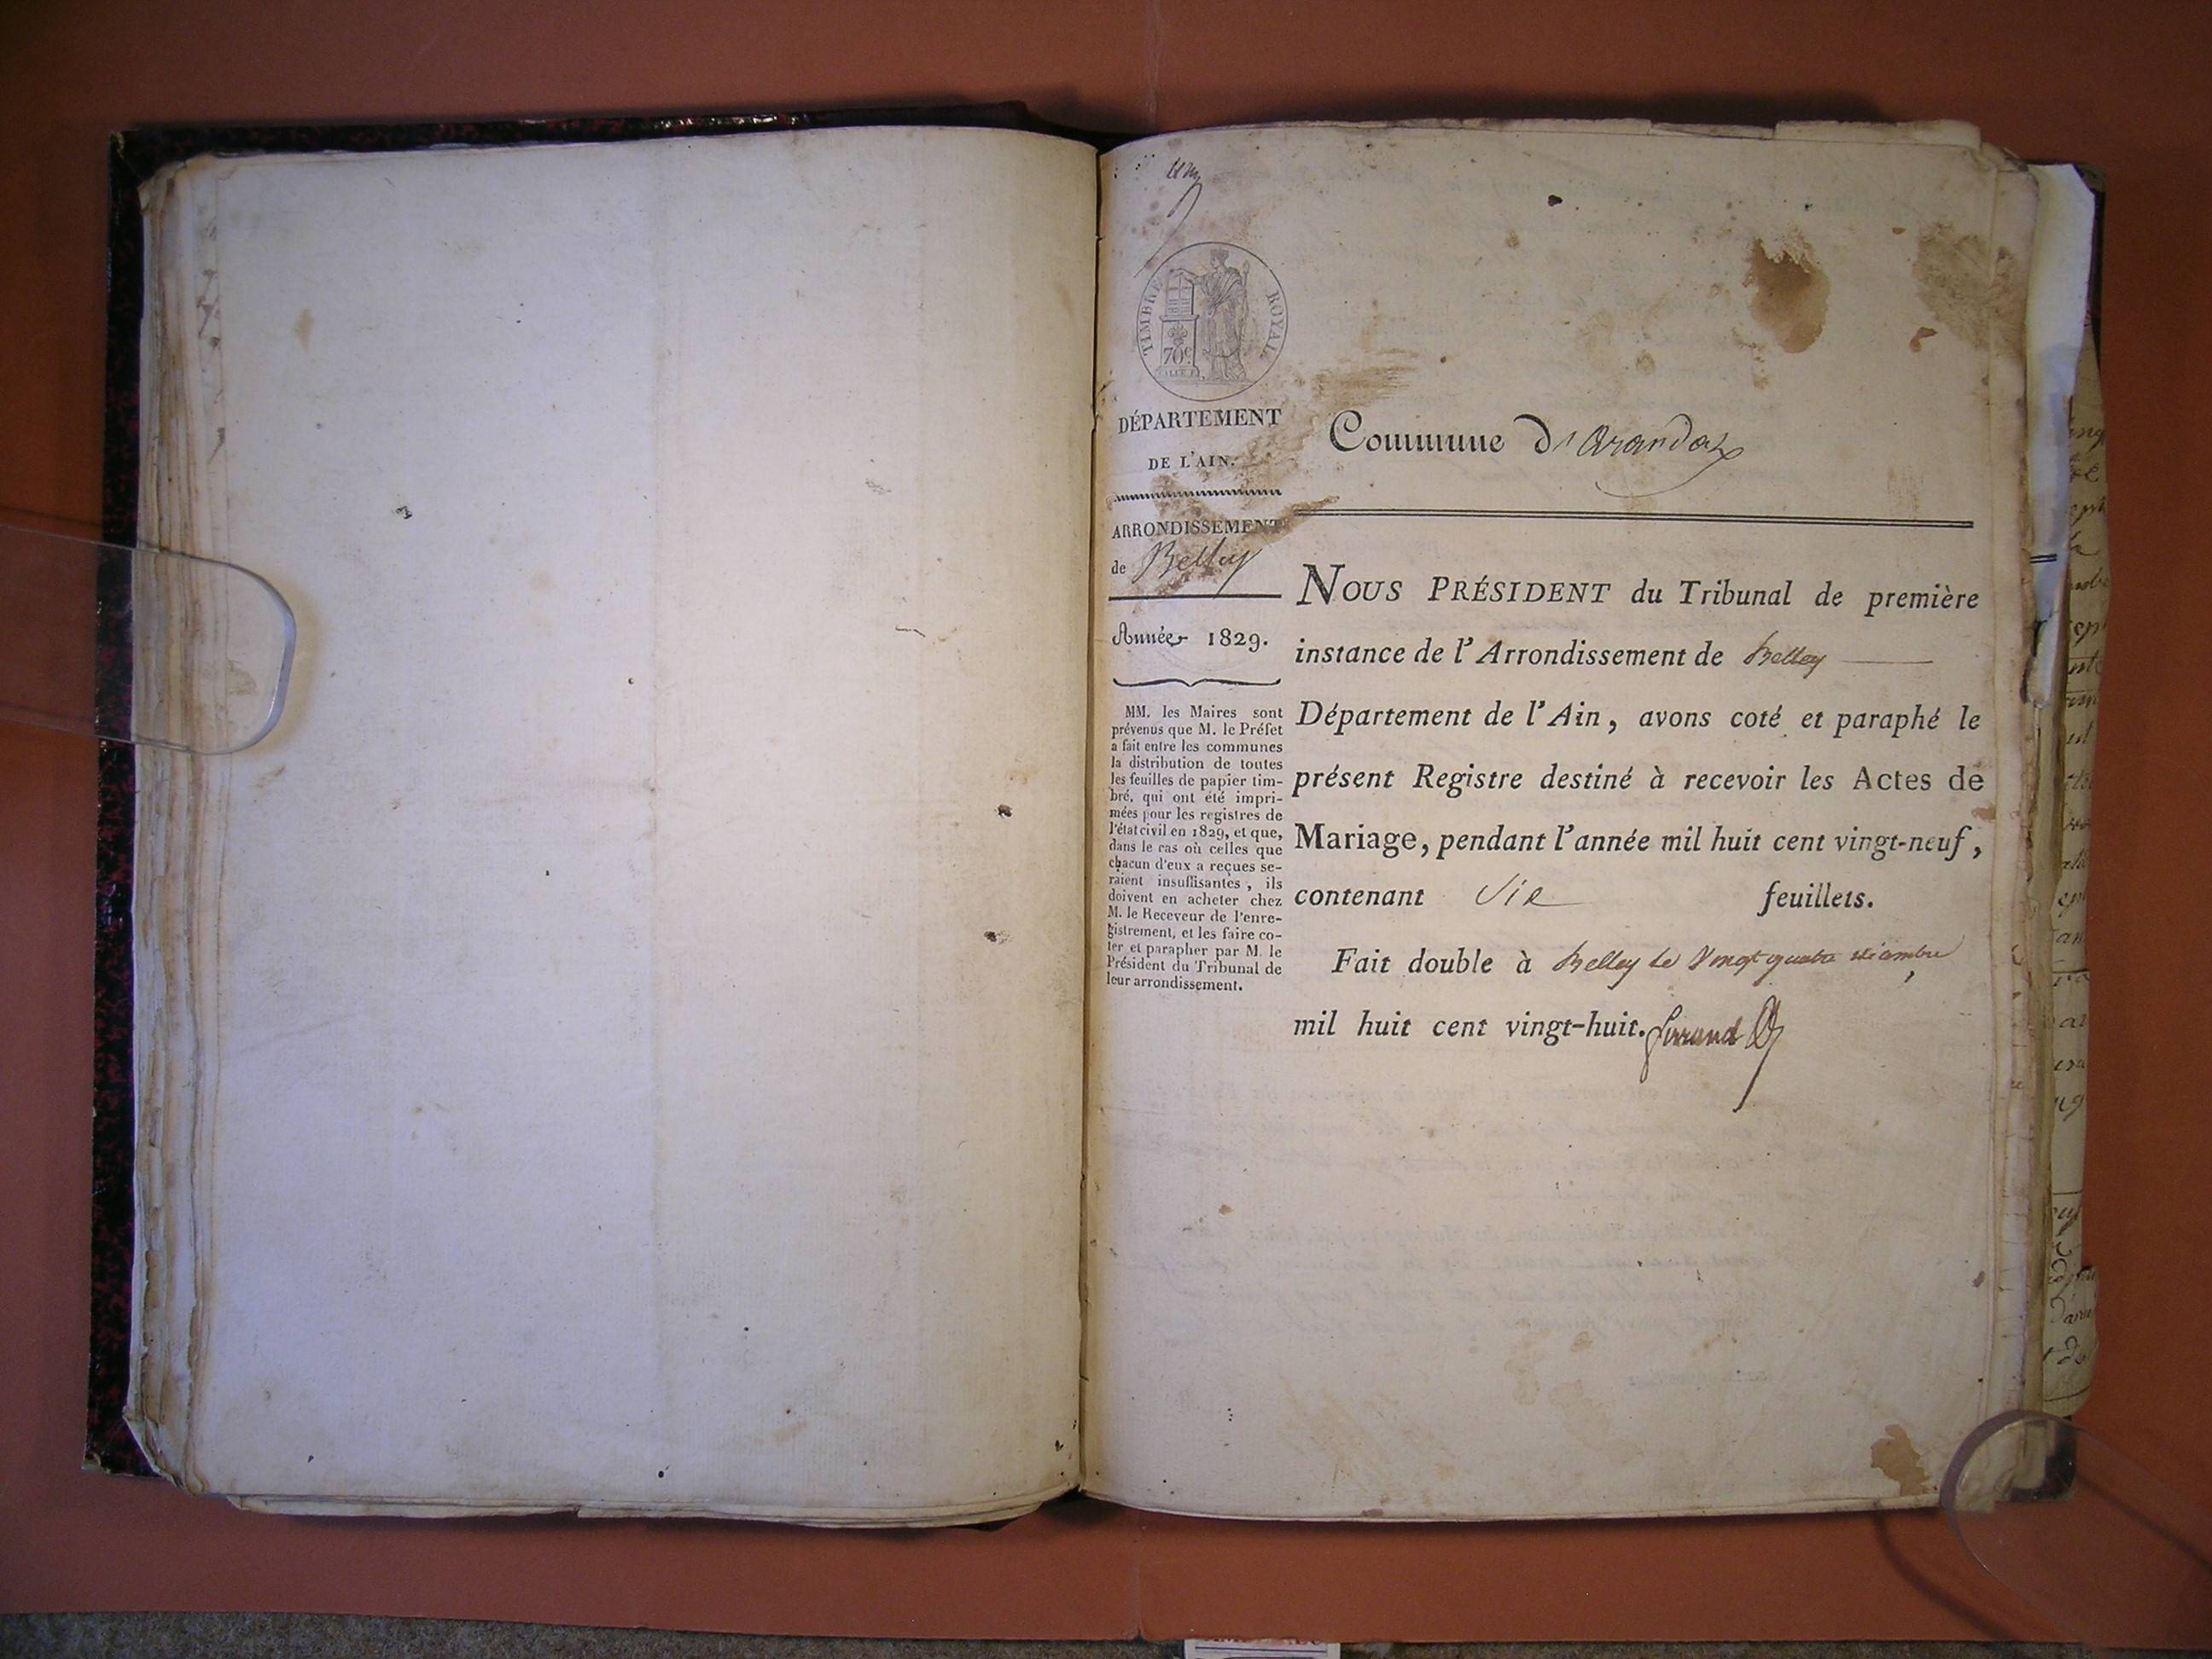 un
TIMBRE ROYAL
70c
DÉPARTEMENT
DE L'AIN.
ARRONDISSEMENT
de Belley
Année 1829.
MM. les Maires sont
prévenus que M. le Préfet
a fait entre les communes
la distribution de toutes
les feuilles de papier tim-
bré, qui ont été impri-
mées pour les registres de
l'état civil en 1829, et que,
dans le cas où celles que
chacun d'eux a reçues se-
raient insuffisantes, ils
doivent en acheter chez
M. le Receveur de l'enre-
gistrement, et les faire co-
ter et parapher par M. le
Président du Tribunal de
leur arrondissement.
Commune d'arandaz
NOUS PRÉSIDENT du Tribunal de première
instance de l'Arrondissement de Belley
Département de l'Ain, avons coté et paraphé le
présent Registre destiné à recevoir les Actes de
Mariage, pendant l'année mil huit cent vingt-neuf,
contenant Six feuillets.
Fait double à Belley le Vingt quatre décembre
mil huit cent vingt-huit.